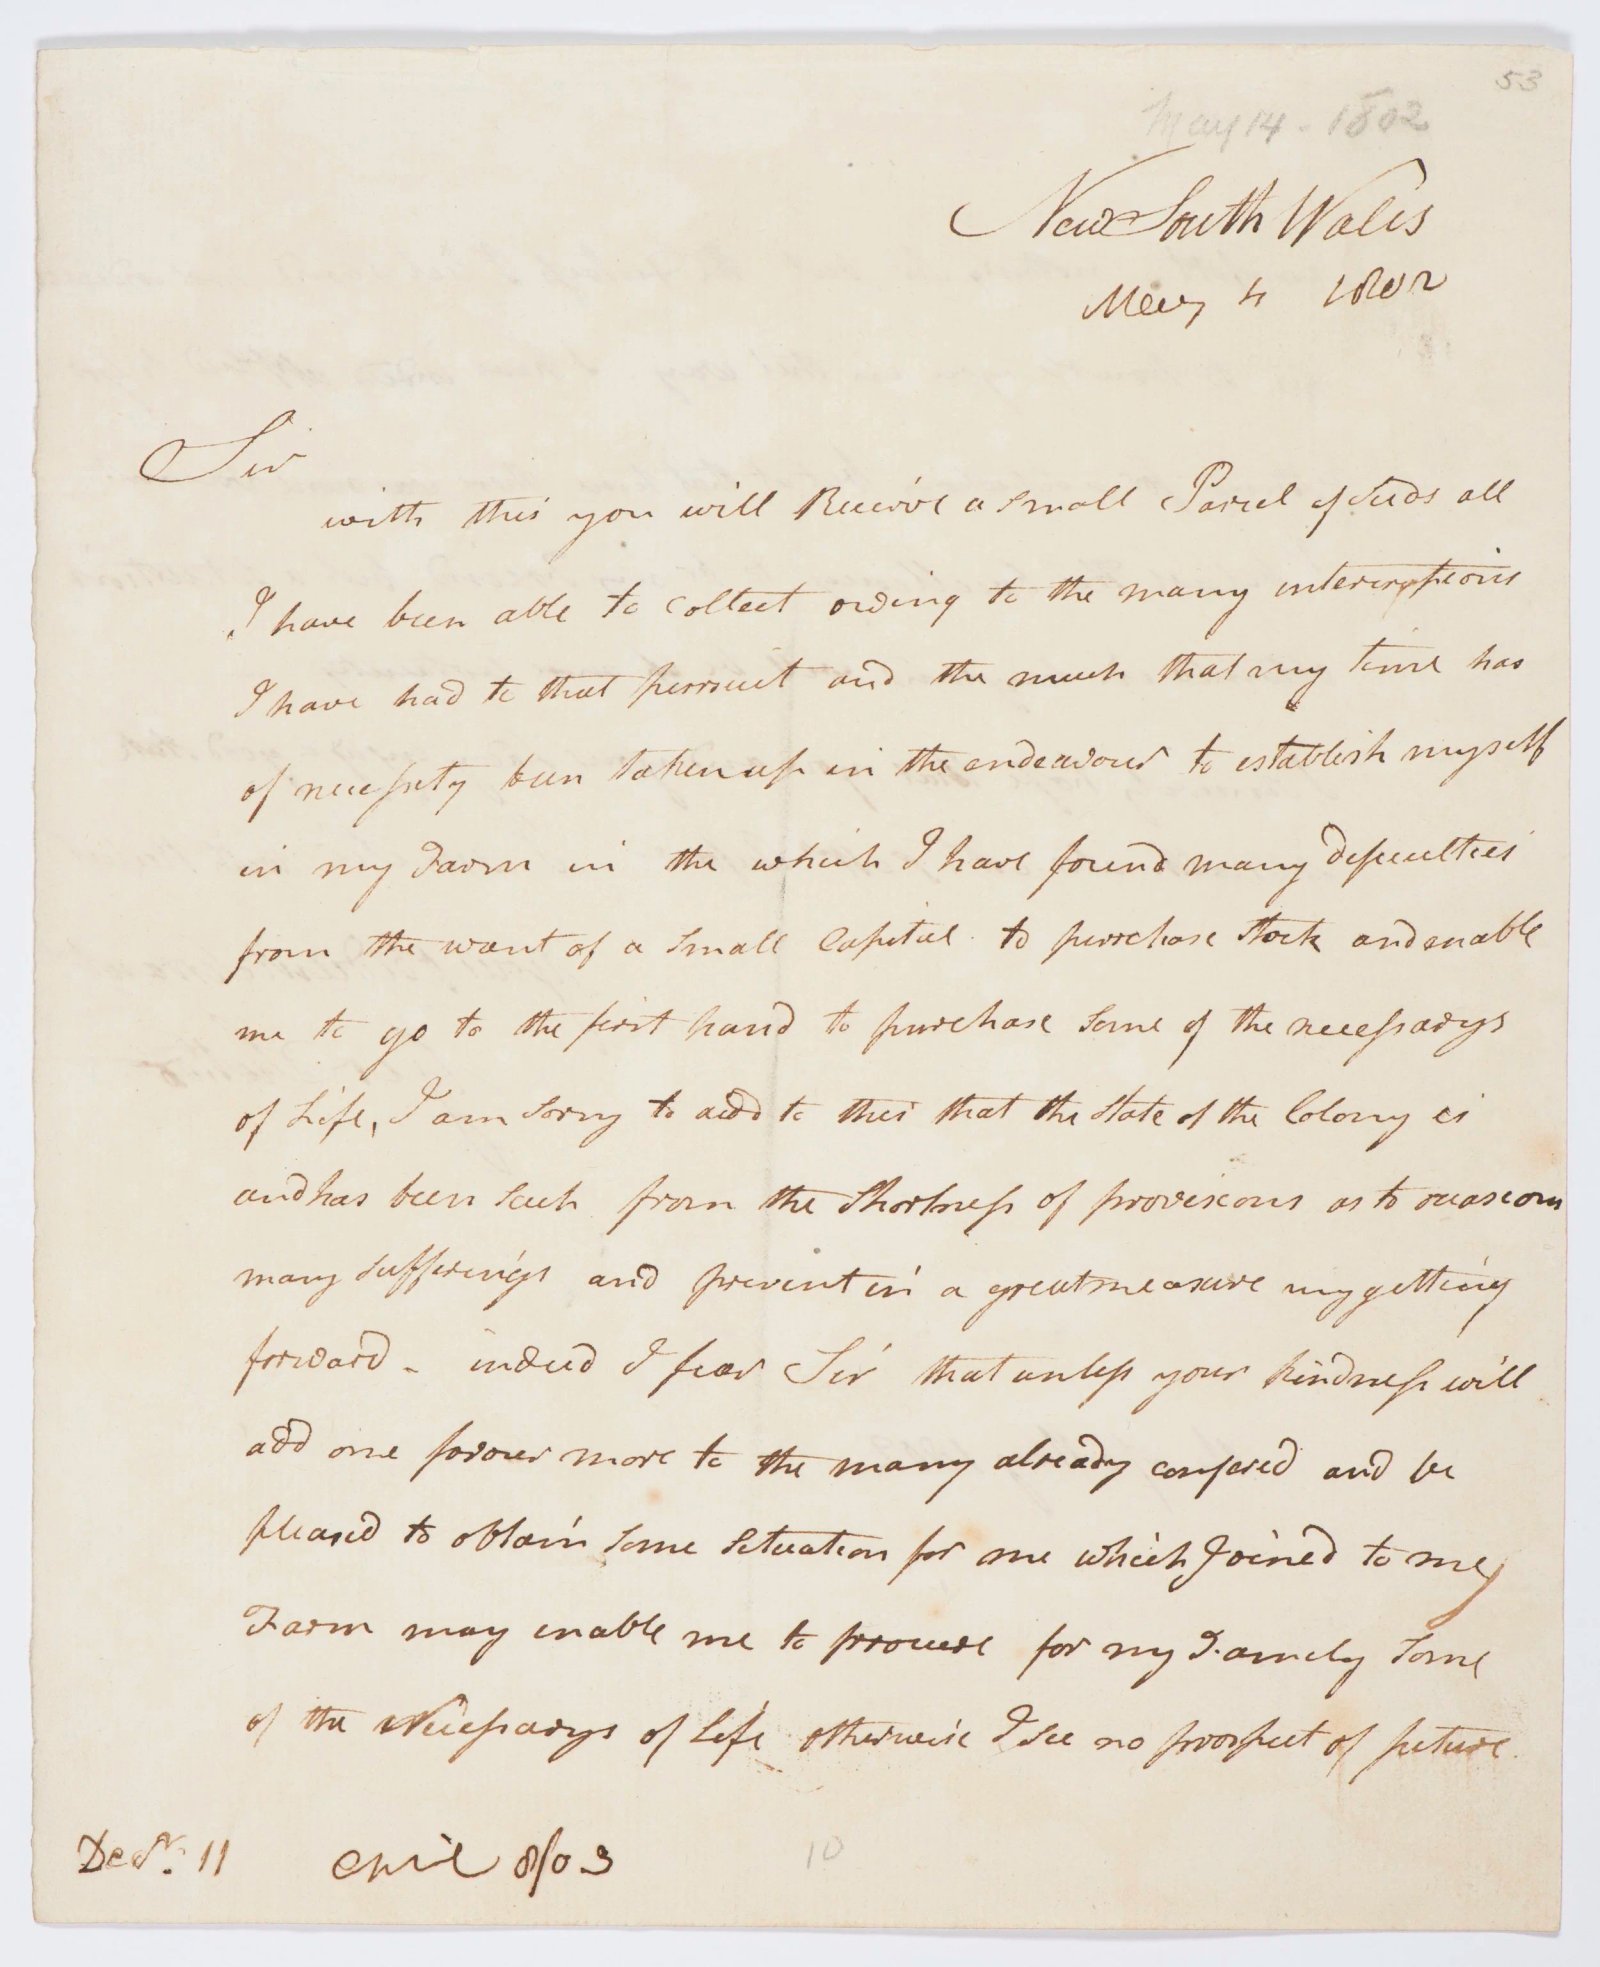 53
May 14 - 1802
New South Wales
May 4 1802
Sir
with this you will Receive a small Parcel of seeds all
I have been able to Collect owing to the many interruptions
I have had to that persuit and the much that my time has
of necessity been taken up in the endeavour to establish myself
in my Farm in the which I have found many dificulties
from the want of a Small Capital to purchase Stock and enable
me to go to the first hand to purchase Some of the necessarys
of Life, I am Sorry to add to this that the State of the Colony is
and has been Such from the Shortness of provisions as to occasion
many Sufferings and prevent in a great measure my getting
forward - indeed I fear Sir that unless your kindness will
add one favour more to the many already confered and be
pleased to obtain Some Situation for me which Joined to my
Farm may enable me to procure for my Family Some
of the Necessarys of Life otherwise I See no prospect of future
Decr. 11 April 8/03
10